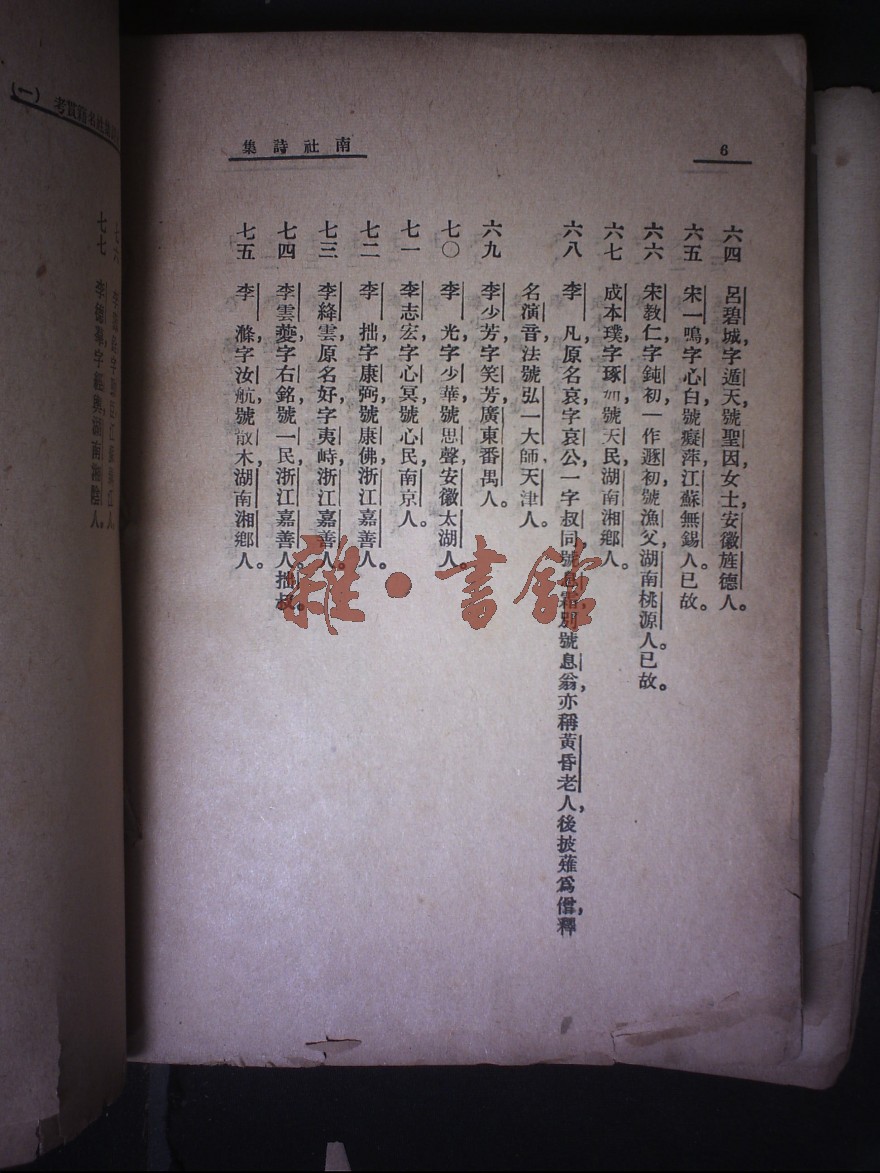 6
南社詩集
六四 呂碧城，字遁天，號聖因女士，安徽旌德人。
六五 宋一鳴，字心白，號癡萍，江蘇無錫人。已故。
六六 宋教仁，字鈍初，一作遯初，號漁父，湖南桃源人。已故。
六七 成本璞，字琢如，號天民，湖南湘鄉人。
六八 李 凡，原名哀，字哀公，一字叔同，號息霜，別號息翁，亦稱黃昏老人，後披薙爲僧，釋
名演音，法號弘一大師，天津人。
六九 李少芳，字笑芳，廣東番禺人。
七〇 李 光，字少華，號思聲，安徽太湖人。
七一 李志宏，字心冥，號心民，南京人。
七二 李 拙，字康弼，號康佛，浙江嘉善人。
七三 李絳雲，原名好，字夷峙，浙江嘉善人。
七四 李雲夔，字右銘，號一民，浙江嘉善人。拙叔。
七五 李 滌，字汝航，號散木，湖南湘鄉人。
七六
七七 李德羣，字經輿，湖南湘陰人。
雜·書館